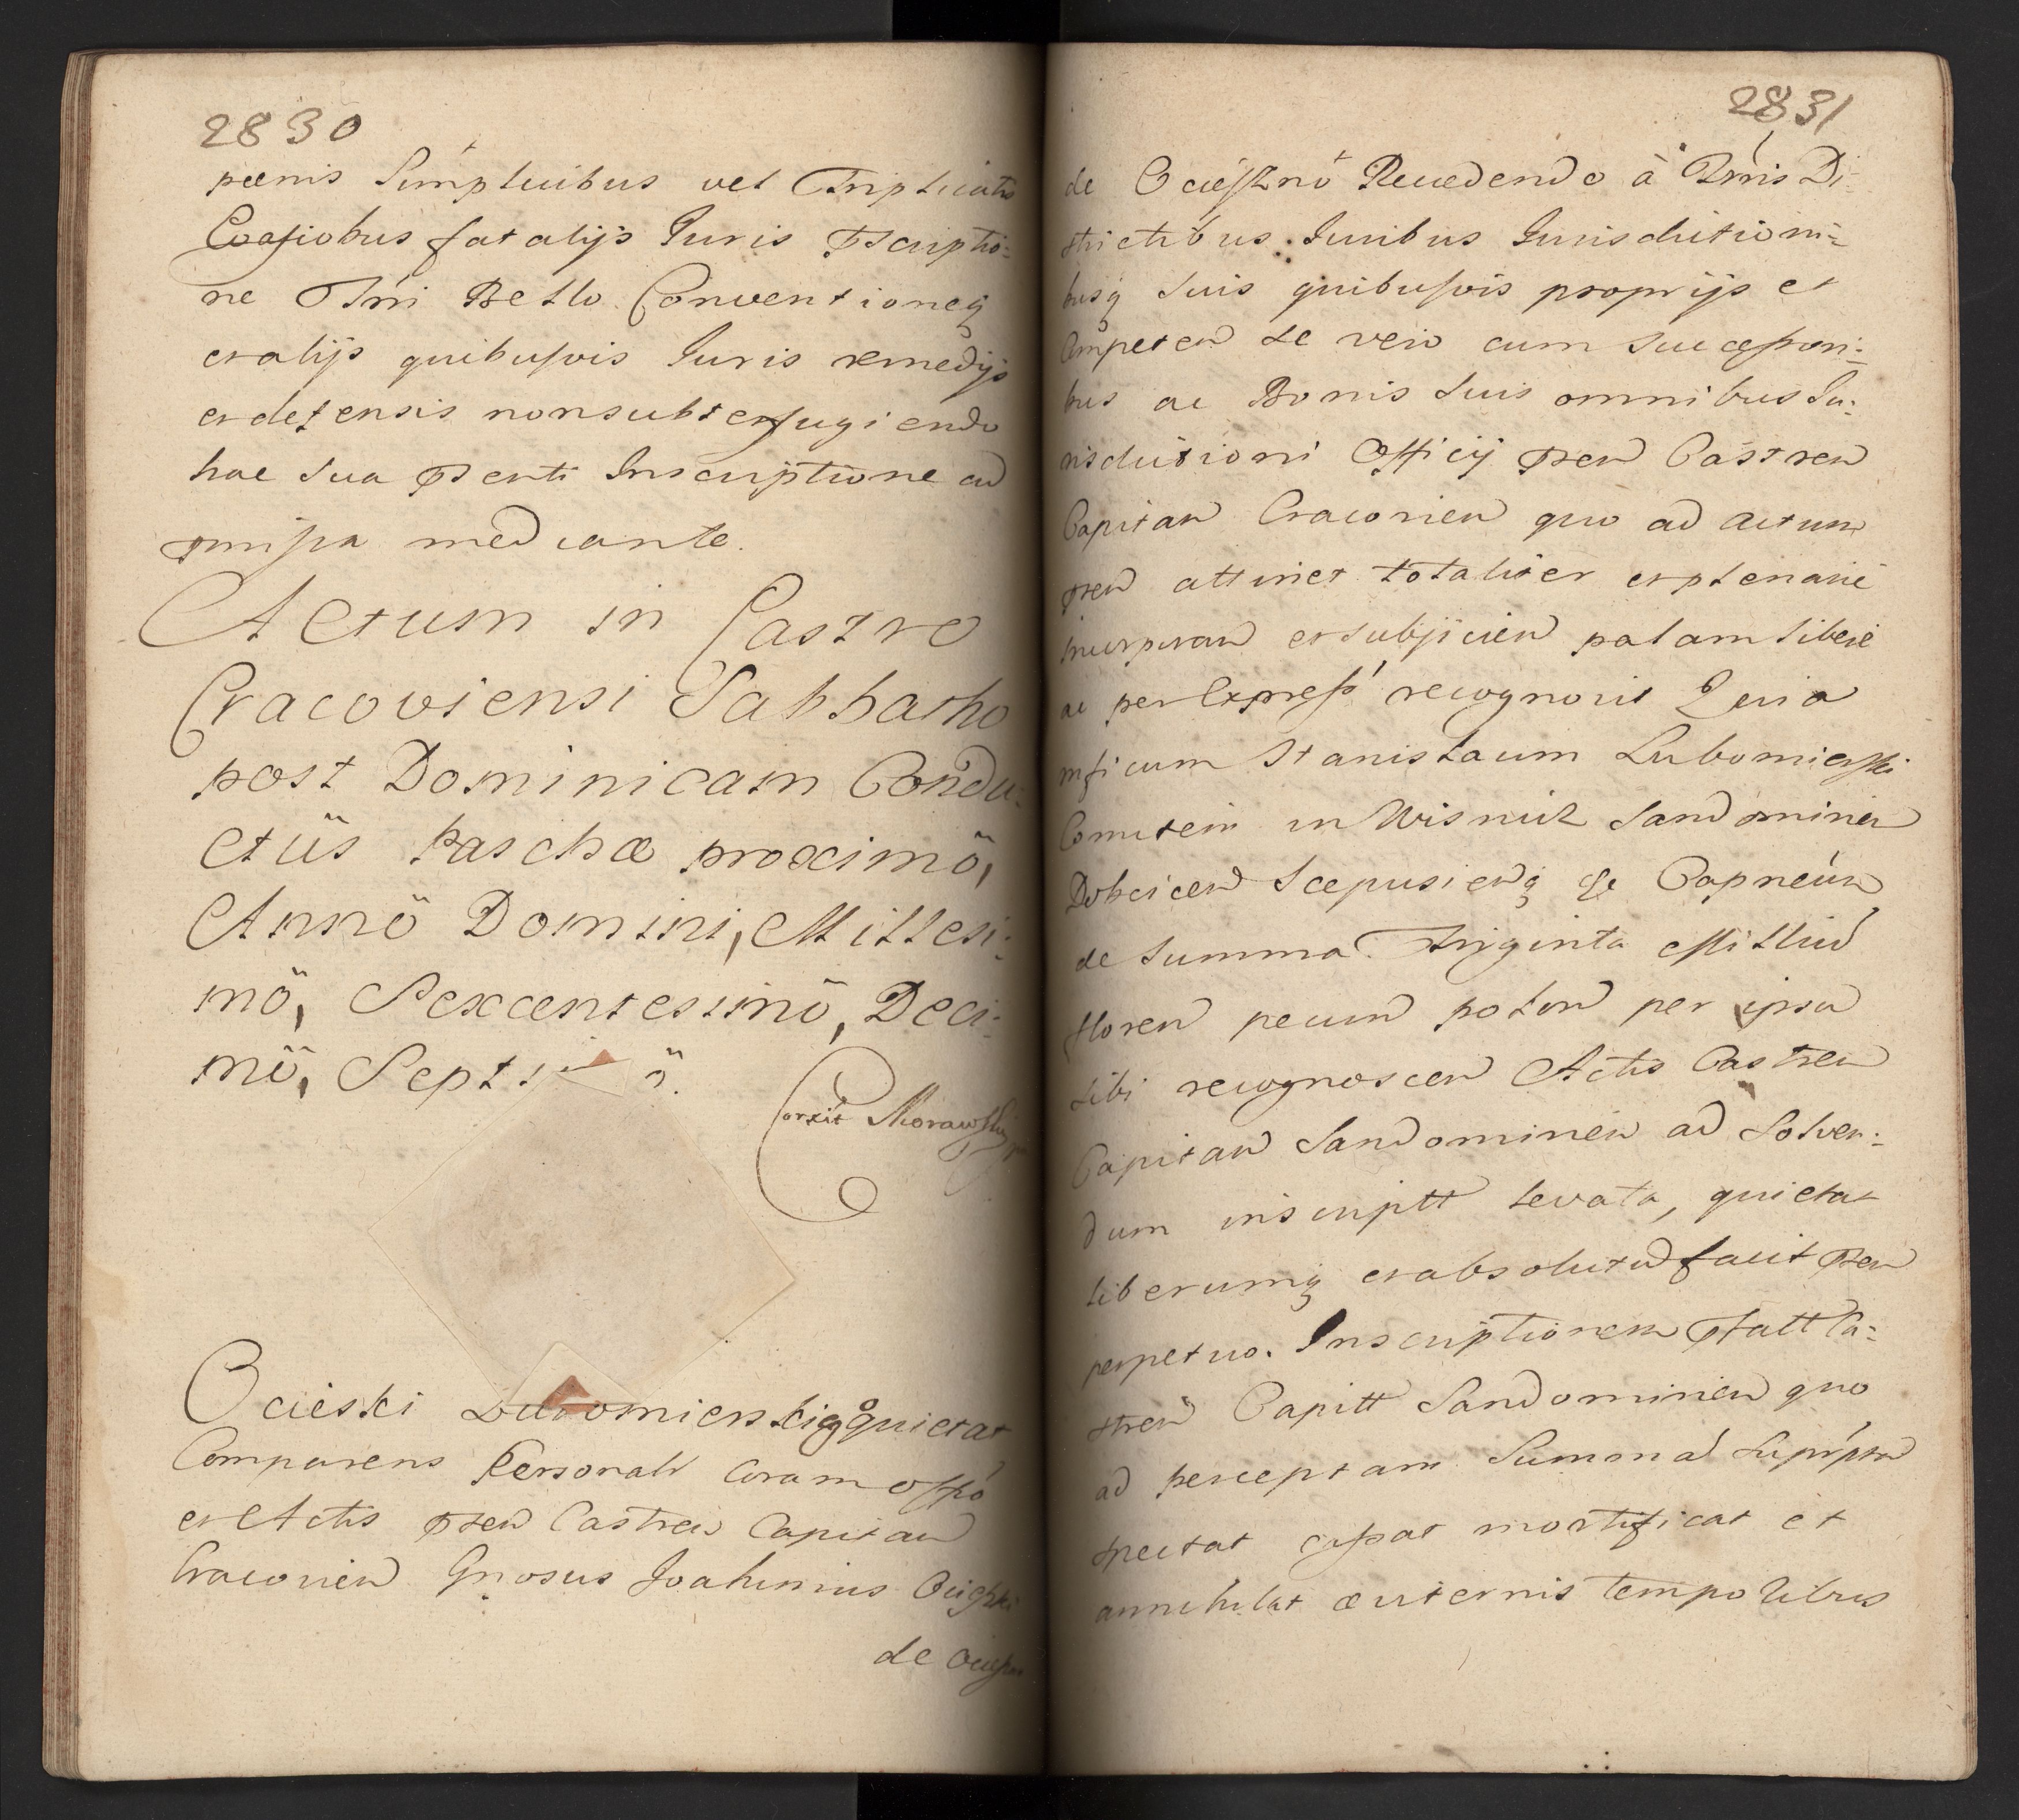 2830
pœnis Simplicibus vel Triplicatis
Evasiobus fatalijs Iuris pscriptio:
ne Trri Bello Conventioneq
et alijs quibusvis Iuris remedijs
et defensis non subterfugiendo
hac sua psenti Inscriptione ad
pmissa mediante.
Actum in Castro
Cracoviensi Sabbatho
post Dominicam Condu:
ctûs Paschæ proximô,
Annô Domini, Millesi:
mô, Sexcentesimô, Deci:
mô, Septi ô.
Corxit Morawski
Ocieski Lubomierskigo quietat
Comparens Personalr Coram offo
et Actis psen Castren Capitan
Cracovien Gnosus Joahimus Ocieski
de Ociesz
2831
de Ocieszno Recedendo à Trris Di:
strictibus Iuribus Iurisdictioni=
busq Suis quibusvis proprijs et
Competen se vero cum Successori:
bus ac Bonis Suis omnibus Iu:
risdictioni Officij psen Castren
Capitan Cracovien quo ad actum
psen attinet totaliter et plenarie
incorporan et subjicien palam libere
ac per Express recognovit Quia
mficum Stanislaum Lubomierski
Comitem in Wisnicz Sandomirien
Dobcicen Scepusienq &c Capneum
de Summa Triginta Millium
floren pecun polon per ipsu
sibi recognoscen Actis Castren
Capitan Sandomirien ad Solven:
dum inscriptt levata, quietat
liberumq et absolutu facit psen
perpetuo. Inscriptionem ptatt Ca:
stren Capitt Sandomirien quo
ad perceptam Summa Suprptm
spectat cassat mortificat et
annihilat æviternis temporibus